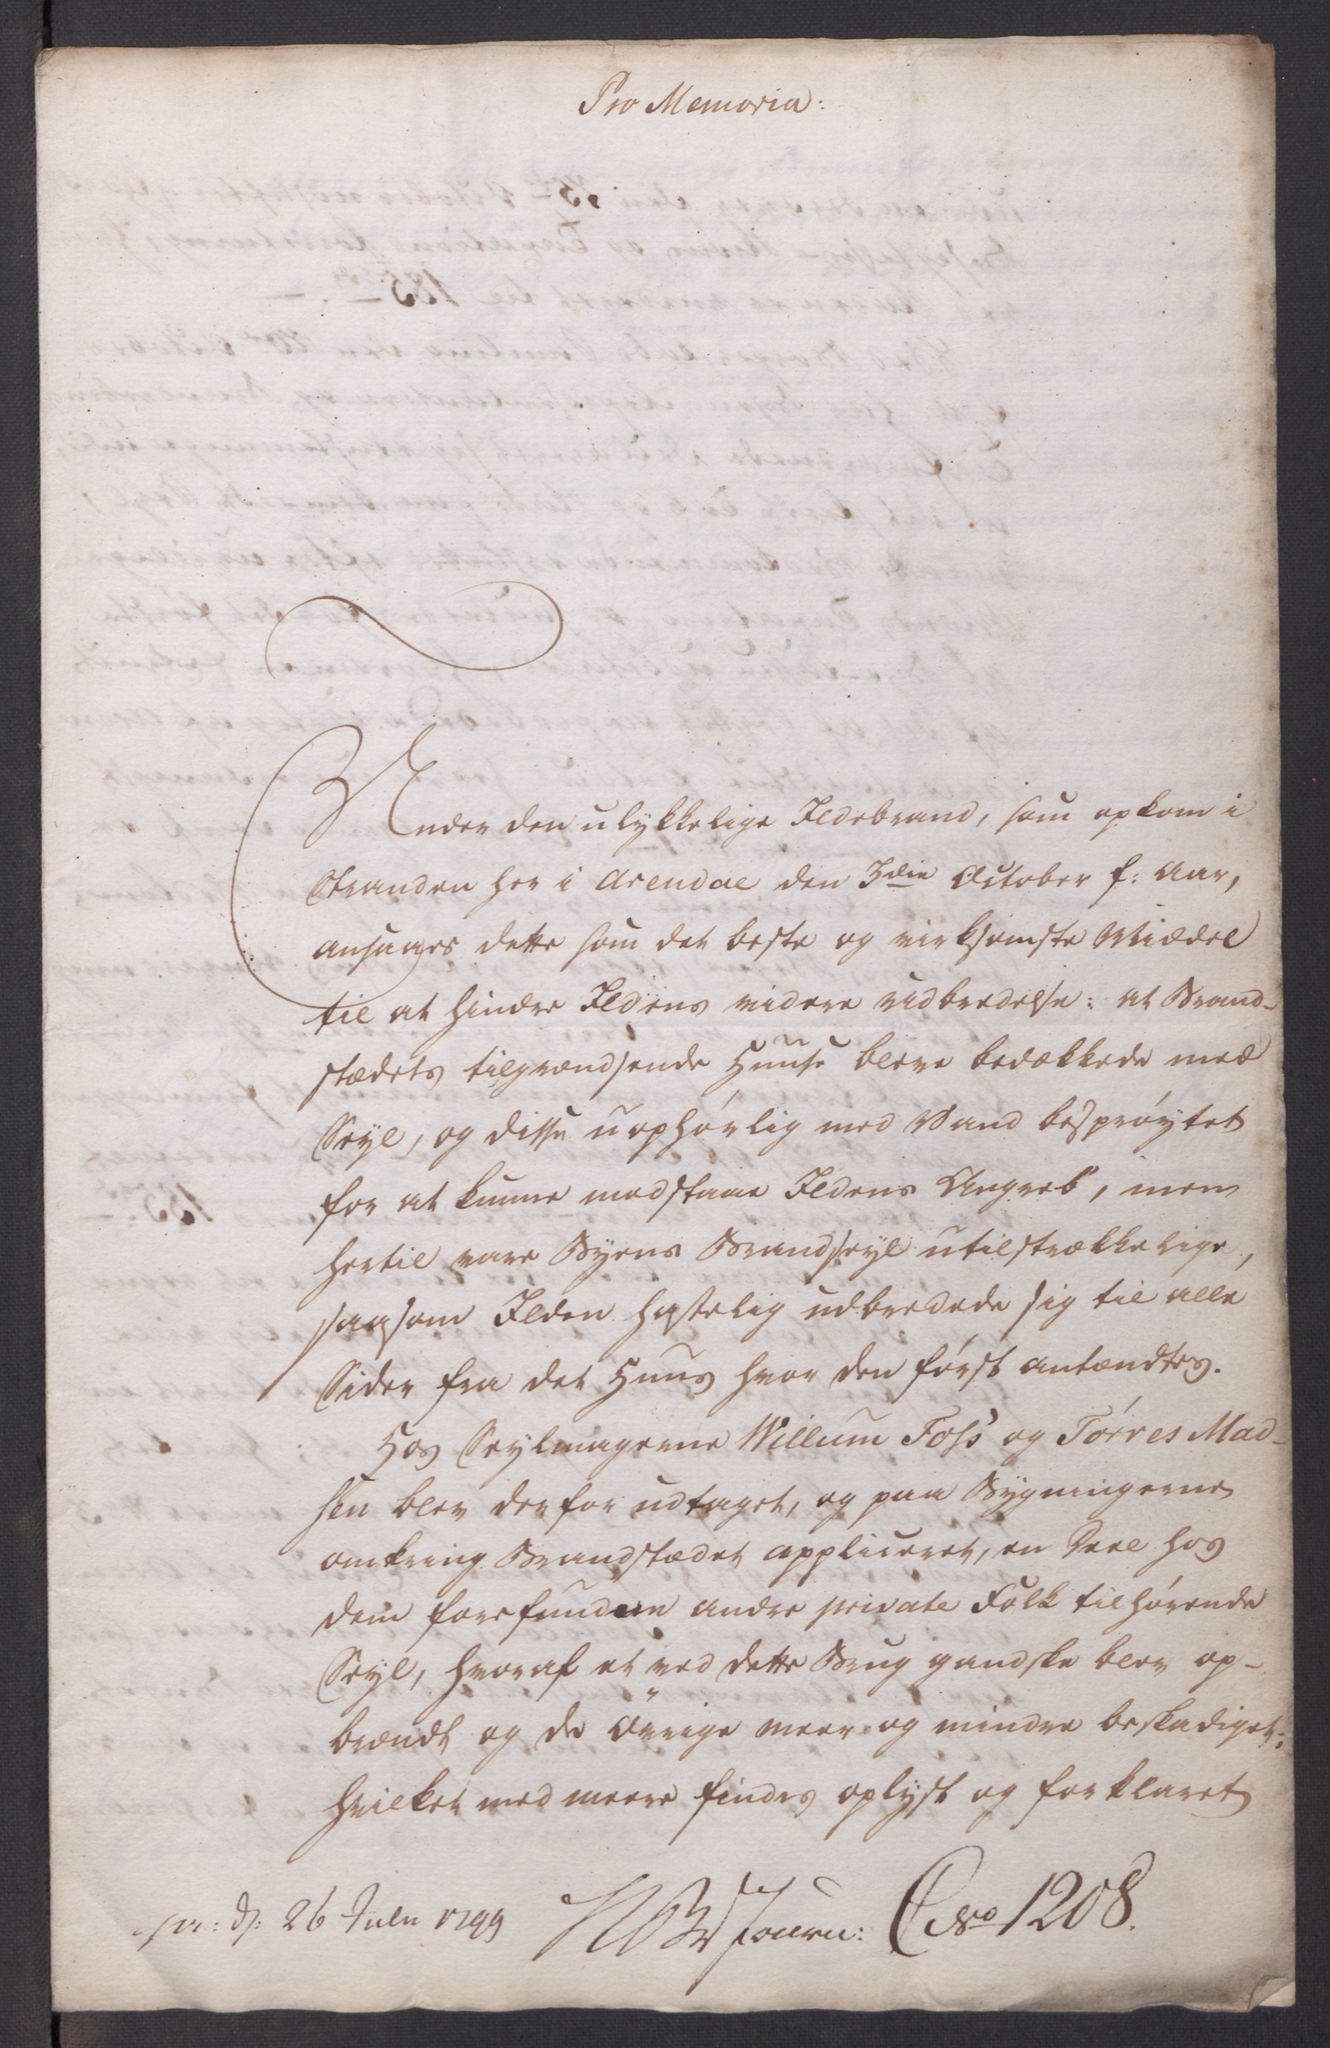 Pro Memoria:
Under den ulykkelige Ildebrand, som opkom i
Stranden her i Arendal den 3die October f: Aar,
ansaaes dette som det beste og virksomste Middel
til at hindre Ildens videre Udbredelse: at Brand-
stædets tilgrændsende Huuse bleve bedækkede med
Seyl, og disse uophørlig med Vand besprøytet
for at kunne modstaae Ildens Angreb, men
hertil vare Byens Brandseyl utilstrækkelige,
saasom Ilden hastelig udbredede sig til alle
Sider fra det Huus hvor den først antændtes.
Hos Seylmagerne Willum Foss og Tørres Mad-
sen blev derfor udtaget, og paa Bygningerne
omkring Brandstædet appliceret, en Deel hos
dem forefunden andre private Folk tilhørende
Seyl, hvoraf et ved dette Brug gandske blev op-
brændt og de Øvrige meer og mindre beskadiget:
hvilket med meere findes oplyst og forklaret
pr: d: 26 Julii 1799 Journ: C No 1208.